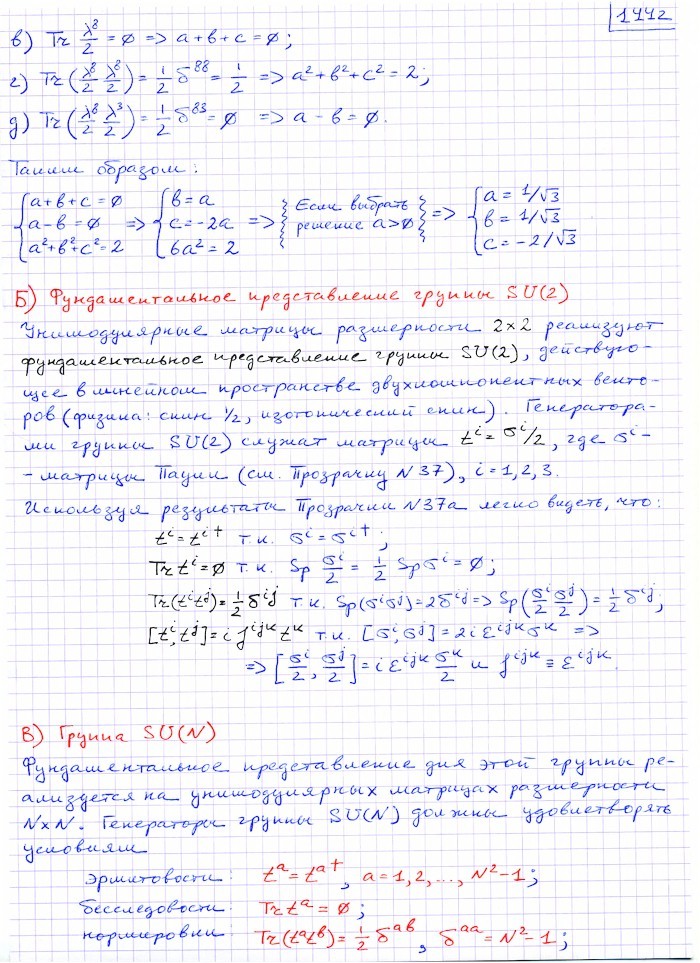 144г
в) Tr λ⁸/2 = ∅ => a+b+c = ∅;
г) Tr(λ⁸/2 λ⁸/2) = 1/2 δ⁸⁸ = 1/2 => a²+b²+c² = 2;
д) Tr(λ⁸/2 λ³/2) = 1/2 δ⁸³ = ∅ => a - b = ∅.
Таким образом:
{a+b+c=∅ {b=a {Если выбрать} {a=1/√3
{a-b=∅ => {c=-2a => {решение a>∅} => {b=1/√3
{a²+b²+c²=2 {6a²=2 {c=-2/√3
Б) Фундаментальное представление группы SU(2)
Унимодулярные матрицы размерности 2×2 реализуют
фундаментальное представление группы SU(2), действую-
щее в линейном пространстве двухкомпонентных векто-
ров (физика: спин 1/2, изотопический спин). Генератора-
ми группы SU(2) служат матрицы tⁱ = σⁱ/2, где σⁱ -
- матрицы Паули (см. Прозрачку N 37), i = 1, 2, 3.
Используя результаты Прозрачки N 37а легко видеть, что:
tⁱ = tⁱ⁺ т.к. σⁱ = σⁱ⁺;
Tr tⁱ = ∅ т.к. Sp σⁱ/2 = 1/2 Sp σⁱ = ∅;
Tr(tⁱtʲ) = 1/2 δⁱʲ т.к. Sp(σⁱσʲ) = 2δⁱʲ => Sp(σⁱ/2 σʲ/2) = 1/2 δⁱʲ;
[tⁱ, tʲ] = i fⁱʲᵏ tᵏ т.к. [σⁱ, σʲ] = 2i εⁱʲᵏ σᵏ =>
=> [σⁱ/2, σʲ/2] = i εⁱʲᵏ σᵏ/2 и fⁱʲᵏ ≡ εⁱʲᵏ.
В) Группа SU(N)
Фундаментальное представление для этой группы ре-
ализуется на унимодулярных матрицах размерности
N×N. Генераторы группы SU(N) должны удовлетворять
условиям
эрмитовости: tᵃ = tᵃ⁺, a = 1, 2, ..., N²-1;
бесследовости: Tr tᵃ = ∅;
нормировки: Tr(tᵃtᵇ) = 1/2 δᵃᵇ, δᵃᵃ = N²-1;